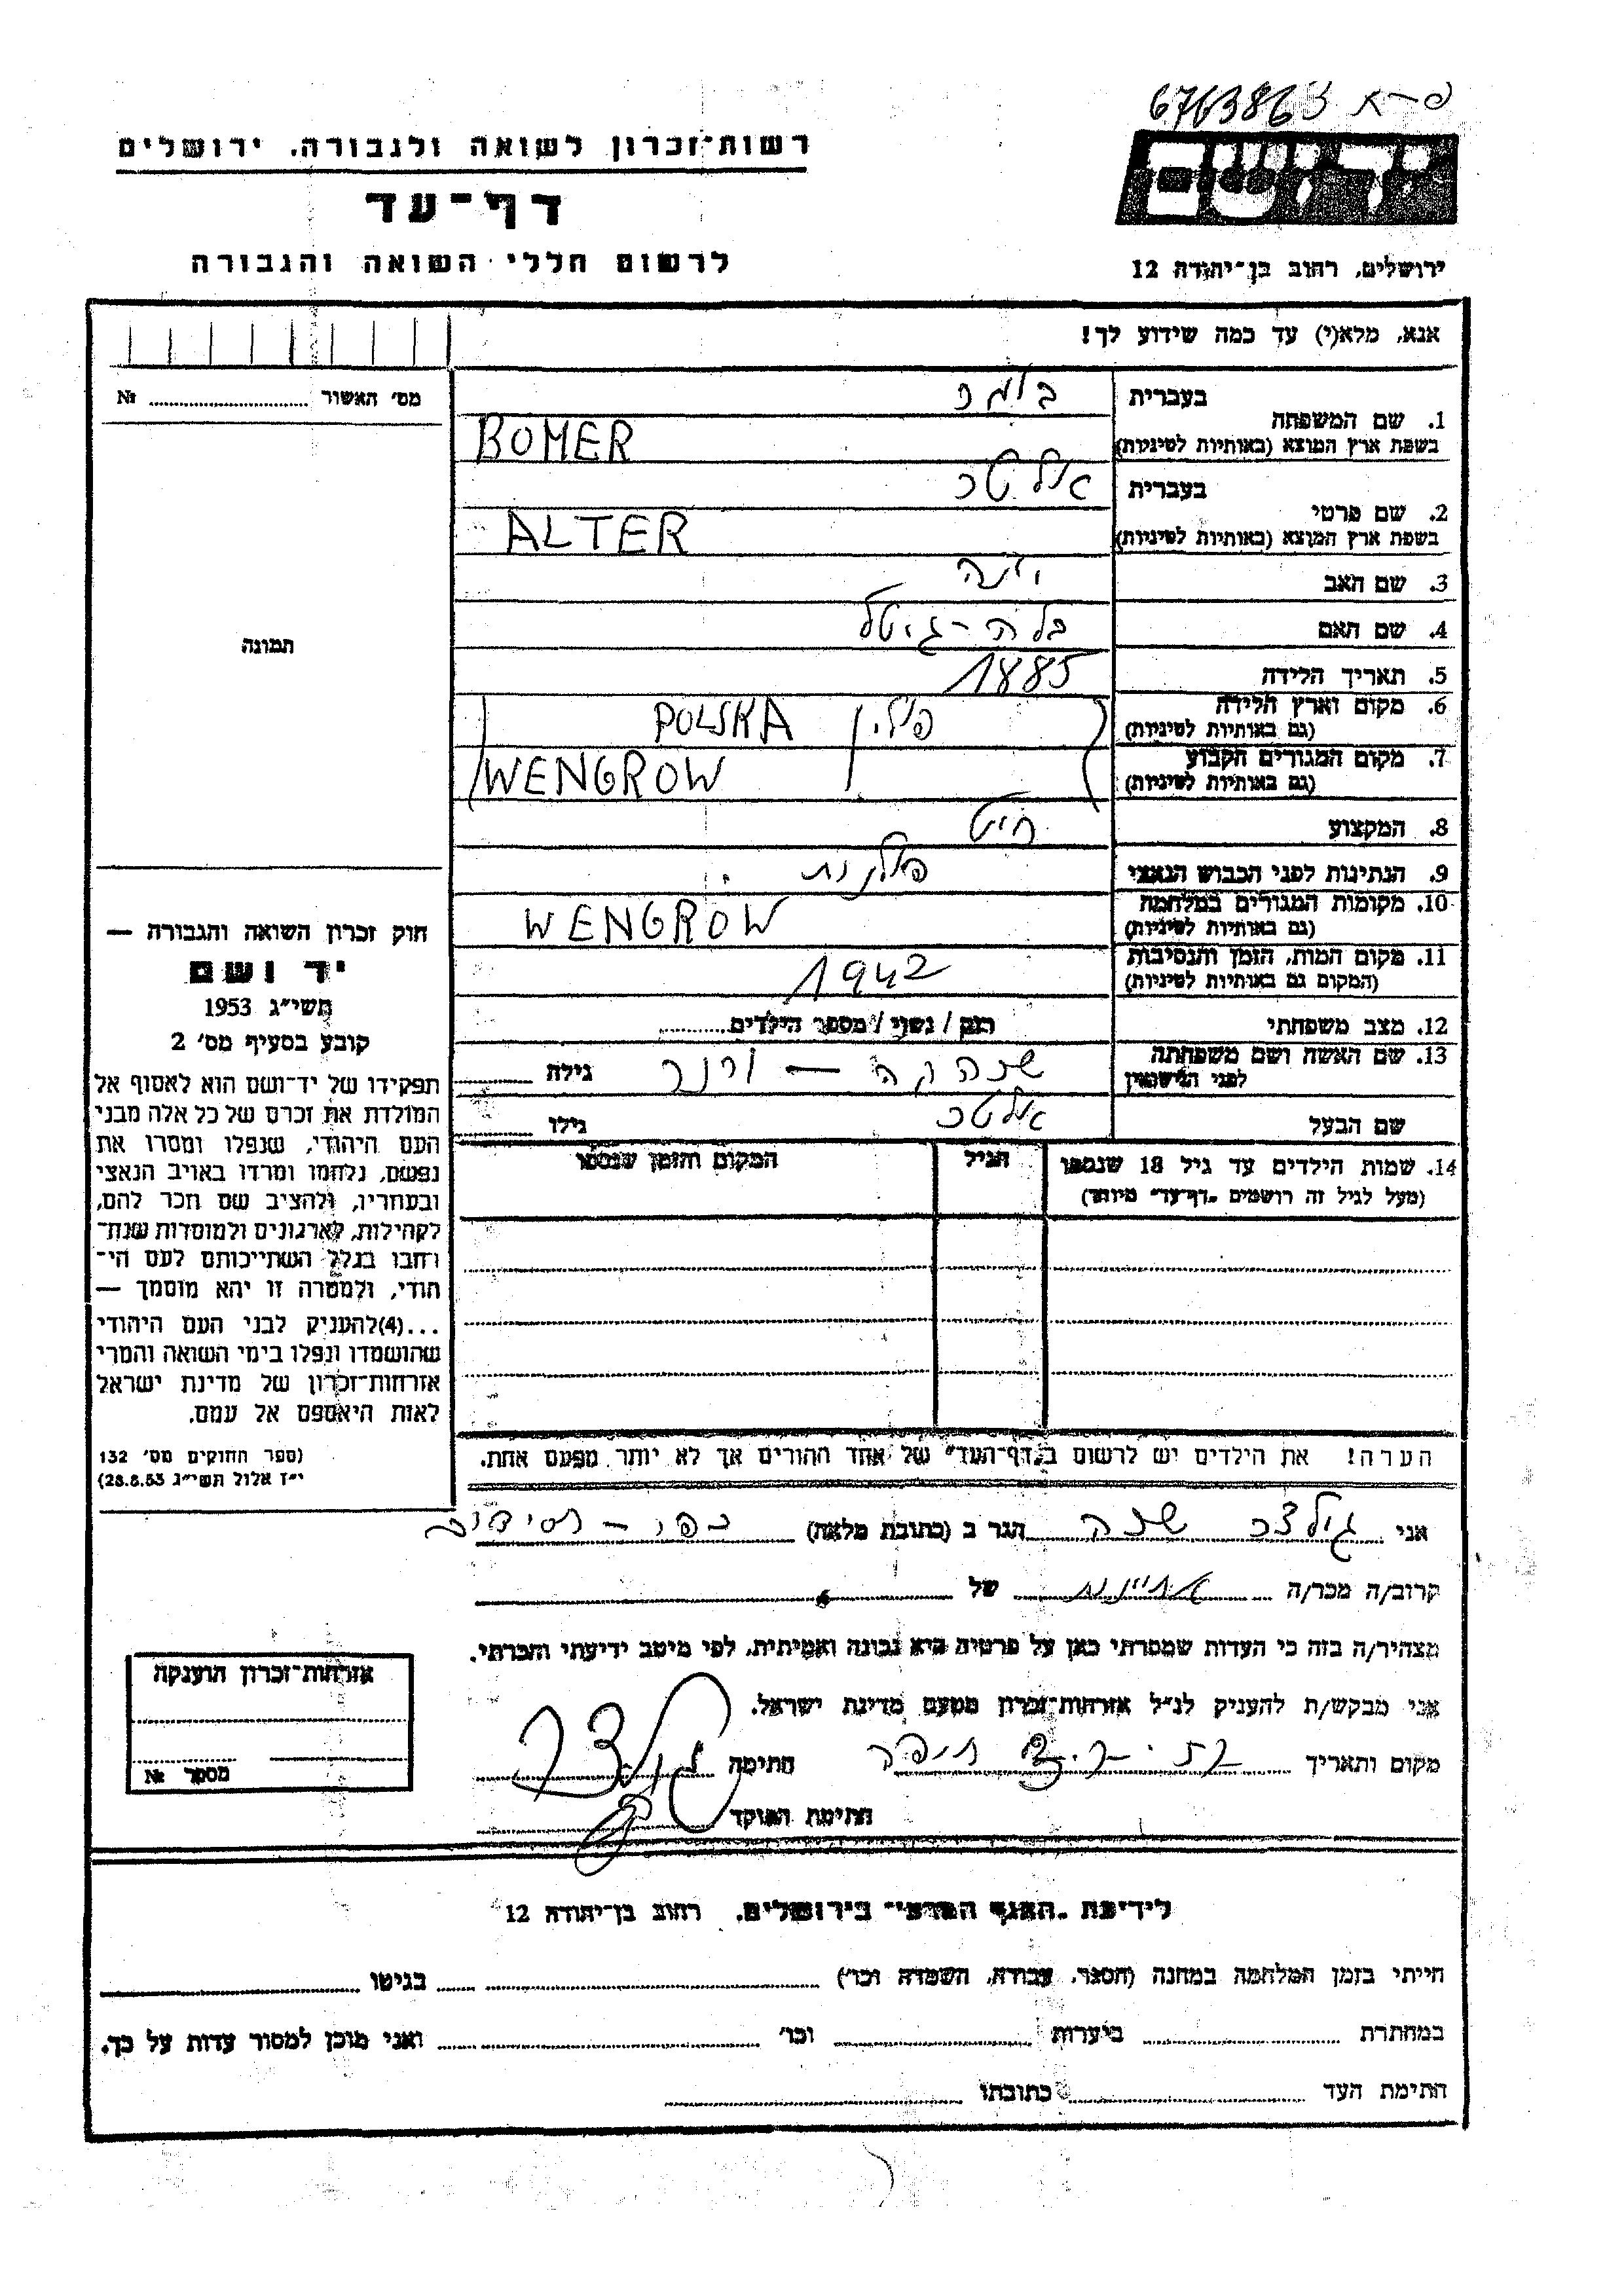 6763863 פ-א
רשות-זכרון לשואה ולגבורה, ירושלים
יד ושם
דף-עד
לרשום חללי השואה והגבורה
ירושלים, רחוב בן-יהודה 12
אנא, מלא(י) עד כמה שידוע לך!
מס' האשור № 
תמונה
חוק זכרון השואה והגבורה —
יד ושם
תשי"ג 1953
קובע בסעיף מס' 2
תפקידו של יד-ושם הוא לאסוף אל
המולדת את זכרם של כל אלה מבני
העם היהודי, שנפלו ומסרו את
נפשם, נלחמו ומרדו באויב הנאצי
ובעוזריו, ולהציב שם וזכר להם,
לקהילות, לארגונים ולמוסדות שנח-
רבו בגלל השתייכותם לעם היהו-
די, ולמטרה זו יהא מוסמך —
...(4)להעניק לבני העם היהודי
שהושמדו ונפלו בימי השואה והמרי
אזרחות-זכרון של מדינת ישראל
לאות היאספם אל עמם.
(ספר החוקים מס' 132
י"ז אלול תשי"ג 28.8.53)
1. שם המשפחה בעברית בומר
בשפת ארץ המוצא (באותיות לטיניות) BOMER
2. שם פרטי בעברית אלטר
בשפת ארץ המוצא (באותיות לטיניות) ALTER
3. שם האב יונה
4. שם האם בלה-גיטל
5. תאריך הלידה 1885
6. מקום וארץ הלידה (גם באותיות לטיניות) פולין POLSKA
7. מקום המגורים הקבוע (גם באותיות לטיניות) WENGROW
8. המקצוע חייט
9. הנתינות לפני הכבוש הנאצי פולנית
10. מקומות המגורים במלחמה (גם באותיות לטיניות) WENGROW
11. מקום המות, הזמן והנסיבות (המקום גם באותיות לטיניות) 1942
12. מצב משפחתי רוק / נשוי / מספר הילדים
13. שם האשה ושם משפחתה לפני הנישואין גילה
שם הבעל אלטר גילו
14. שמות הילדים עד גיל 18 שנספו הגיל המקום והזמן שנספו
(מעל לגיל זה רושמים "דף-עד" מיוחד)
הערה! את הילדים יש לרשום ב"דף-העד" של אחד ההורים אך לא יותר מפעם אחת.
אני גולצר שרה הגר ב (כתובת מלאה) כפר-חסידים
קרוב/ה מכר/ה אחיינית של
מצהיר/ה בזה כי העדות שמסרתי כאן על פרטיה היא נכונה ואמיתית, לפי מיטב ידיעתי והכרתי.
אני מבקש/ת להעניק לנ"ל אזרחות-זכרון מטעם מדינת ישראל.
מקום ותאריך חיפה חתימה גולצר
חתימת הפוקד
אזרחות-זכרון הוענקה
מספר №
לידיעת "האגף המדעי" בירושלים, רחוב בן-יהודה 12
הייתי בזמן המלחמה במחנה (הסגר, עבודה, השמדה וכו') בגיטו
במחתרת ביערות וכו' ואני מוכן למסור עדות על כך.
חתימת העד כתובתו